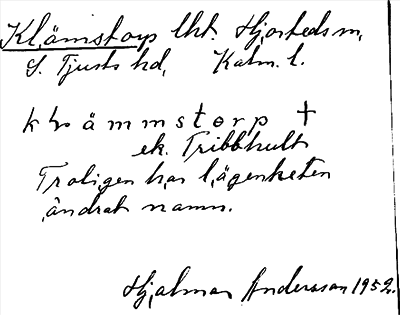 Klämstorp lht. Hjorteds sn,
S. Tjusts hd, Kalm. l.
kl̥ämmstorp +
ek. Tribbhult
Troligen har lägenheten
ändrat namn.
Hjalmar Andersson 1952.